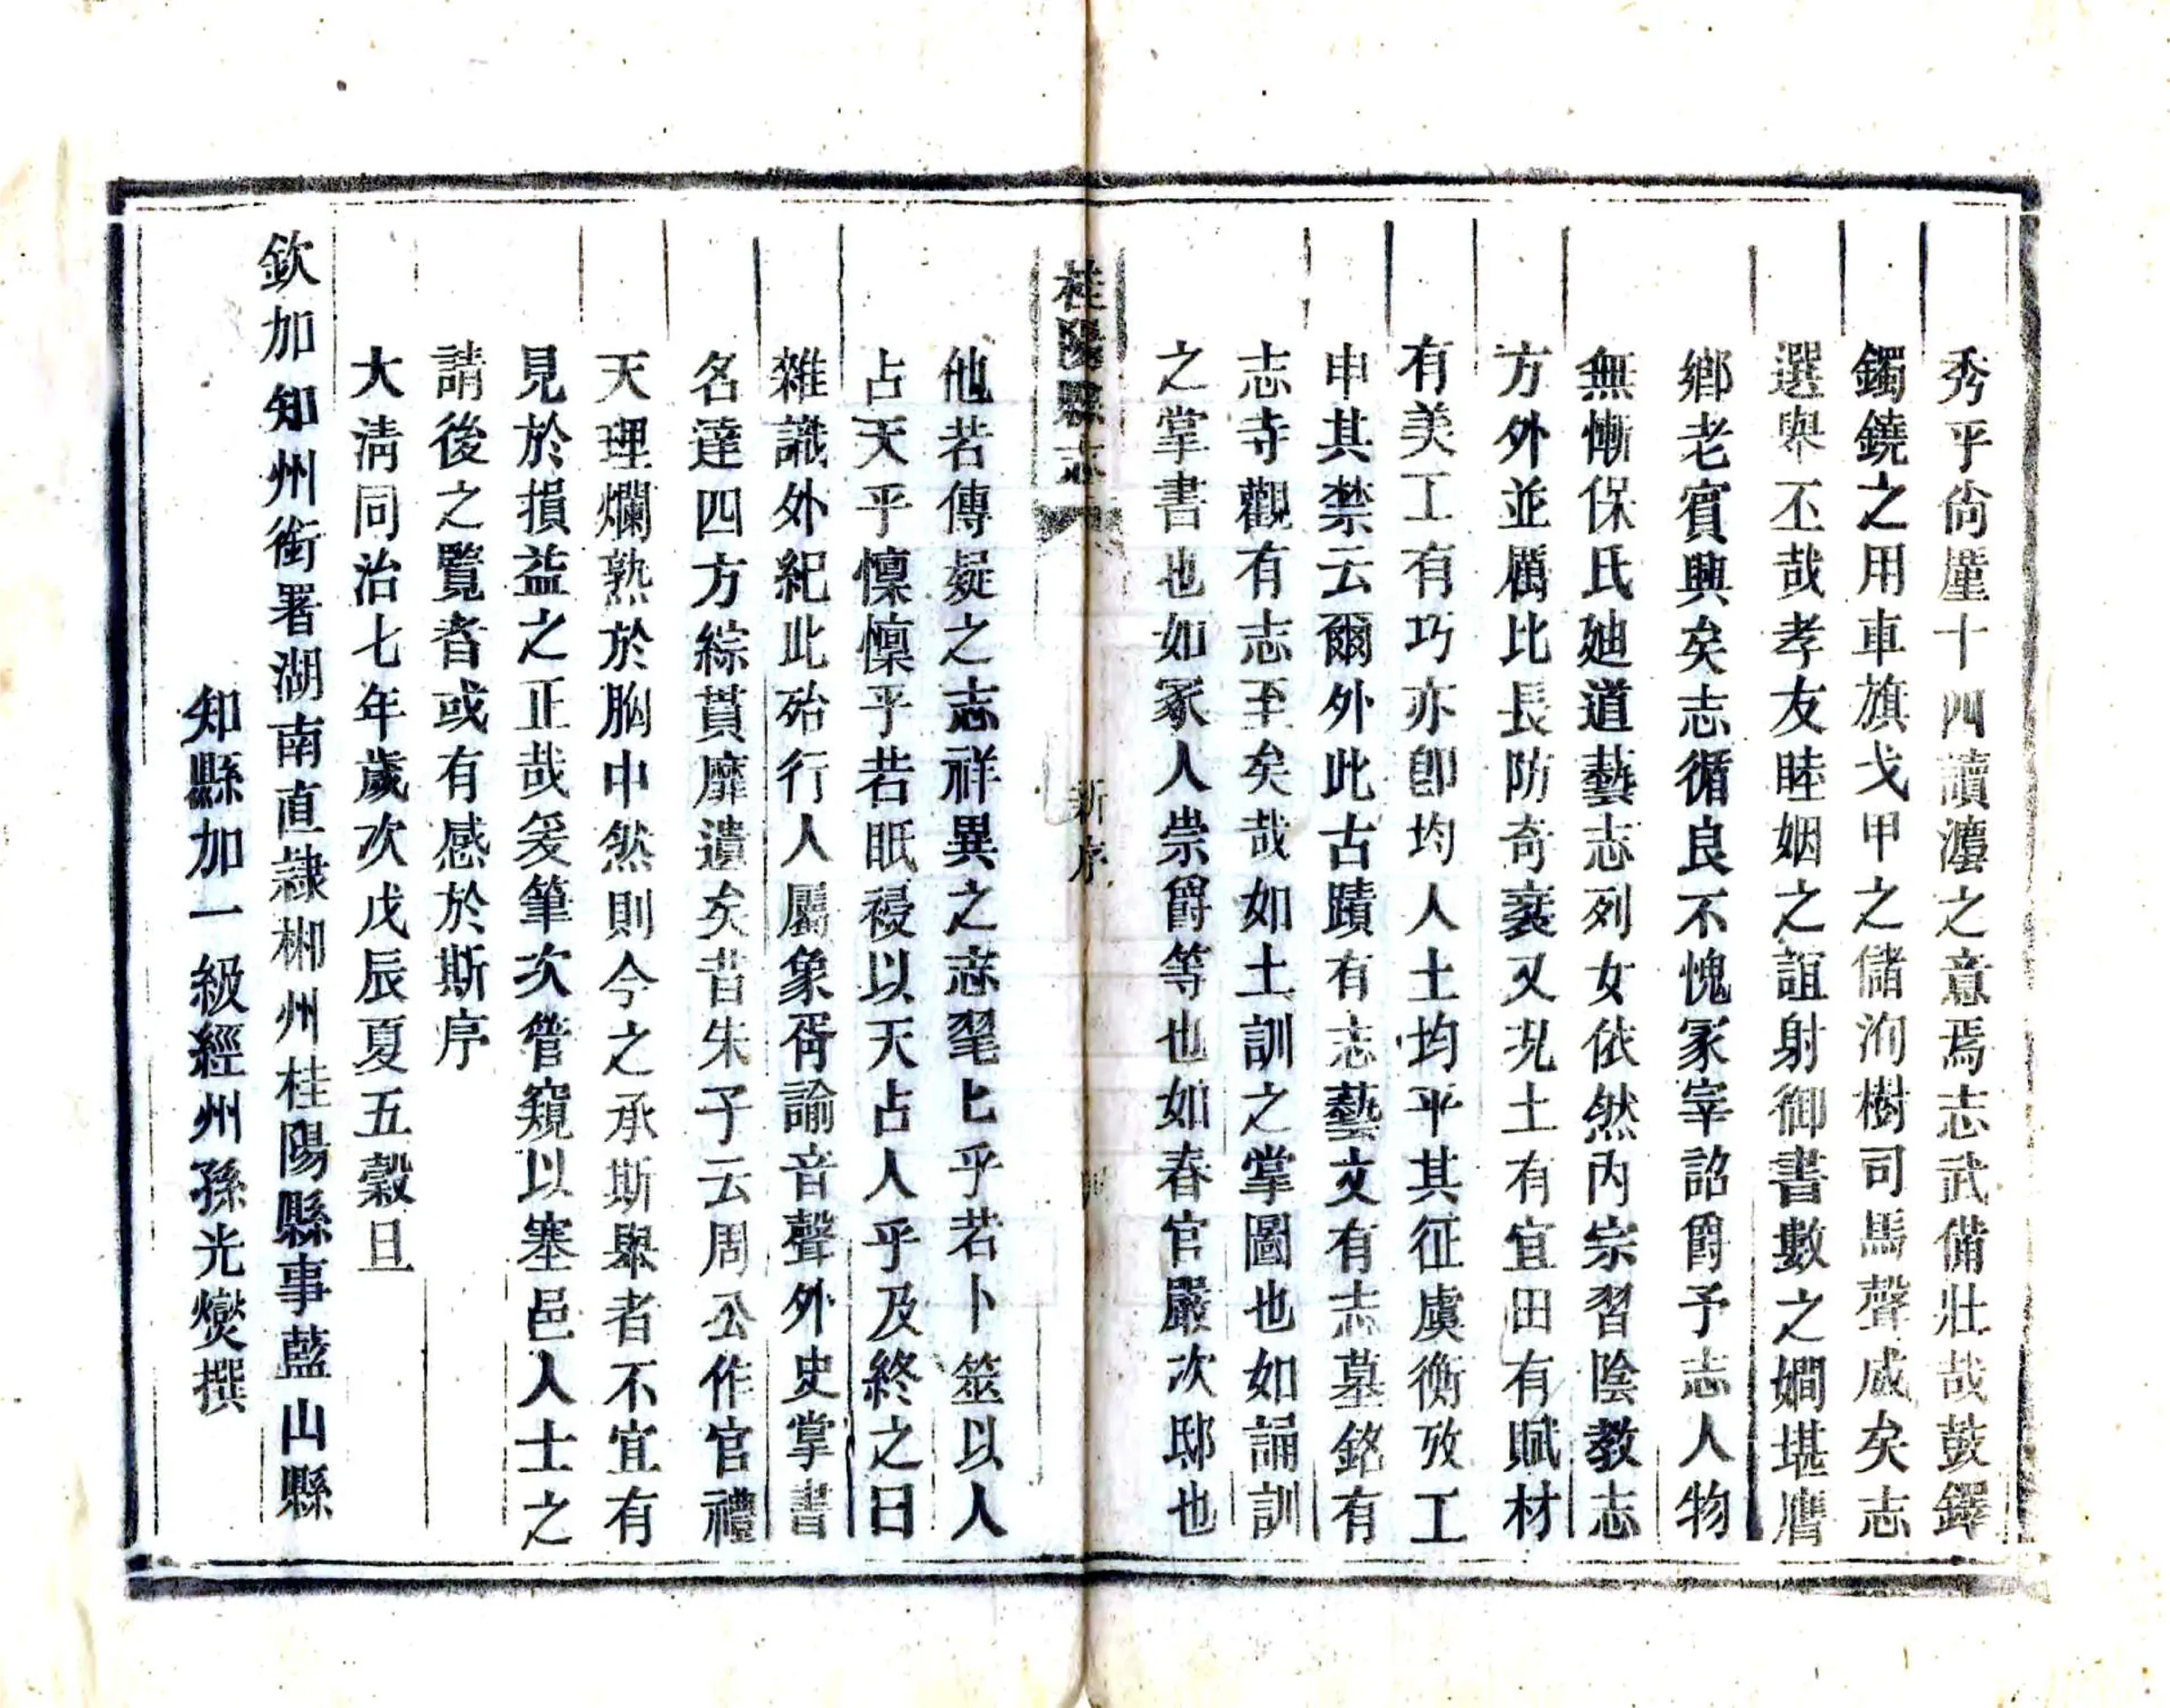 秀乎尙廑十四讀灋之意焉志武備壯哉鼓鐸
鐲鐃之用車旗戈甲之儲洵樹司馬聲威矣志
選舉丕哉孝友睦姻之誼射御書數之嫺堪膺
鄉老賓興矣志循良不愧冢宰詔爵予志人物
無慚保氏廸道藝志列女依然內宗習陰教志
方外並厲比長防奇袤又況土有宜田有賦材
有美工有巧亦卽均人土均平其征虞衡攷工
申其禁云爾外此古蹟有志藝文有志墓銘有
志寺觀有志至矣哉如土訓之掌圖也如誦訓
之掌書也如冢人崇爵等也如春官嚴次邸也
桂陽縣志
新序
他若傳疑之志祥異之志毣匕乎若卜筮以人
占天乎懍懍乎若眂祲以天占人乎及終之曰
雜識外紀此殆行人屬象胥諭音聲外史掌書
名達四方綜貫靡遺矣昔朱子云周公作官禮
天理爛熟於胸中然則今之承斯舉者不宜有
見於損益之正哉爰筆次管窺以塞邑人士之
請後之覽者或有感於斯序
大淸同治七年歲次戊辰夏五穀旦
欽加知州銜署湖南直隸郴州桂陽縣事藍山縣
知縣加一級經州孫光燮撰